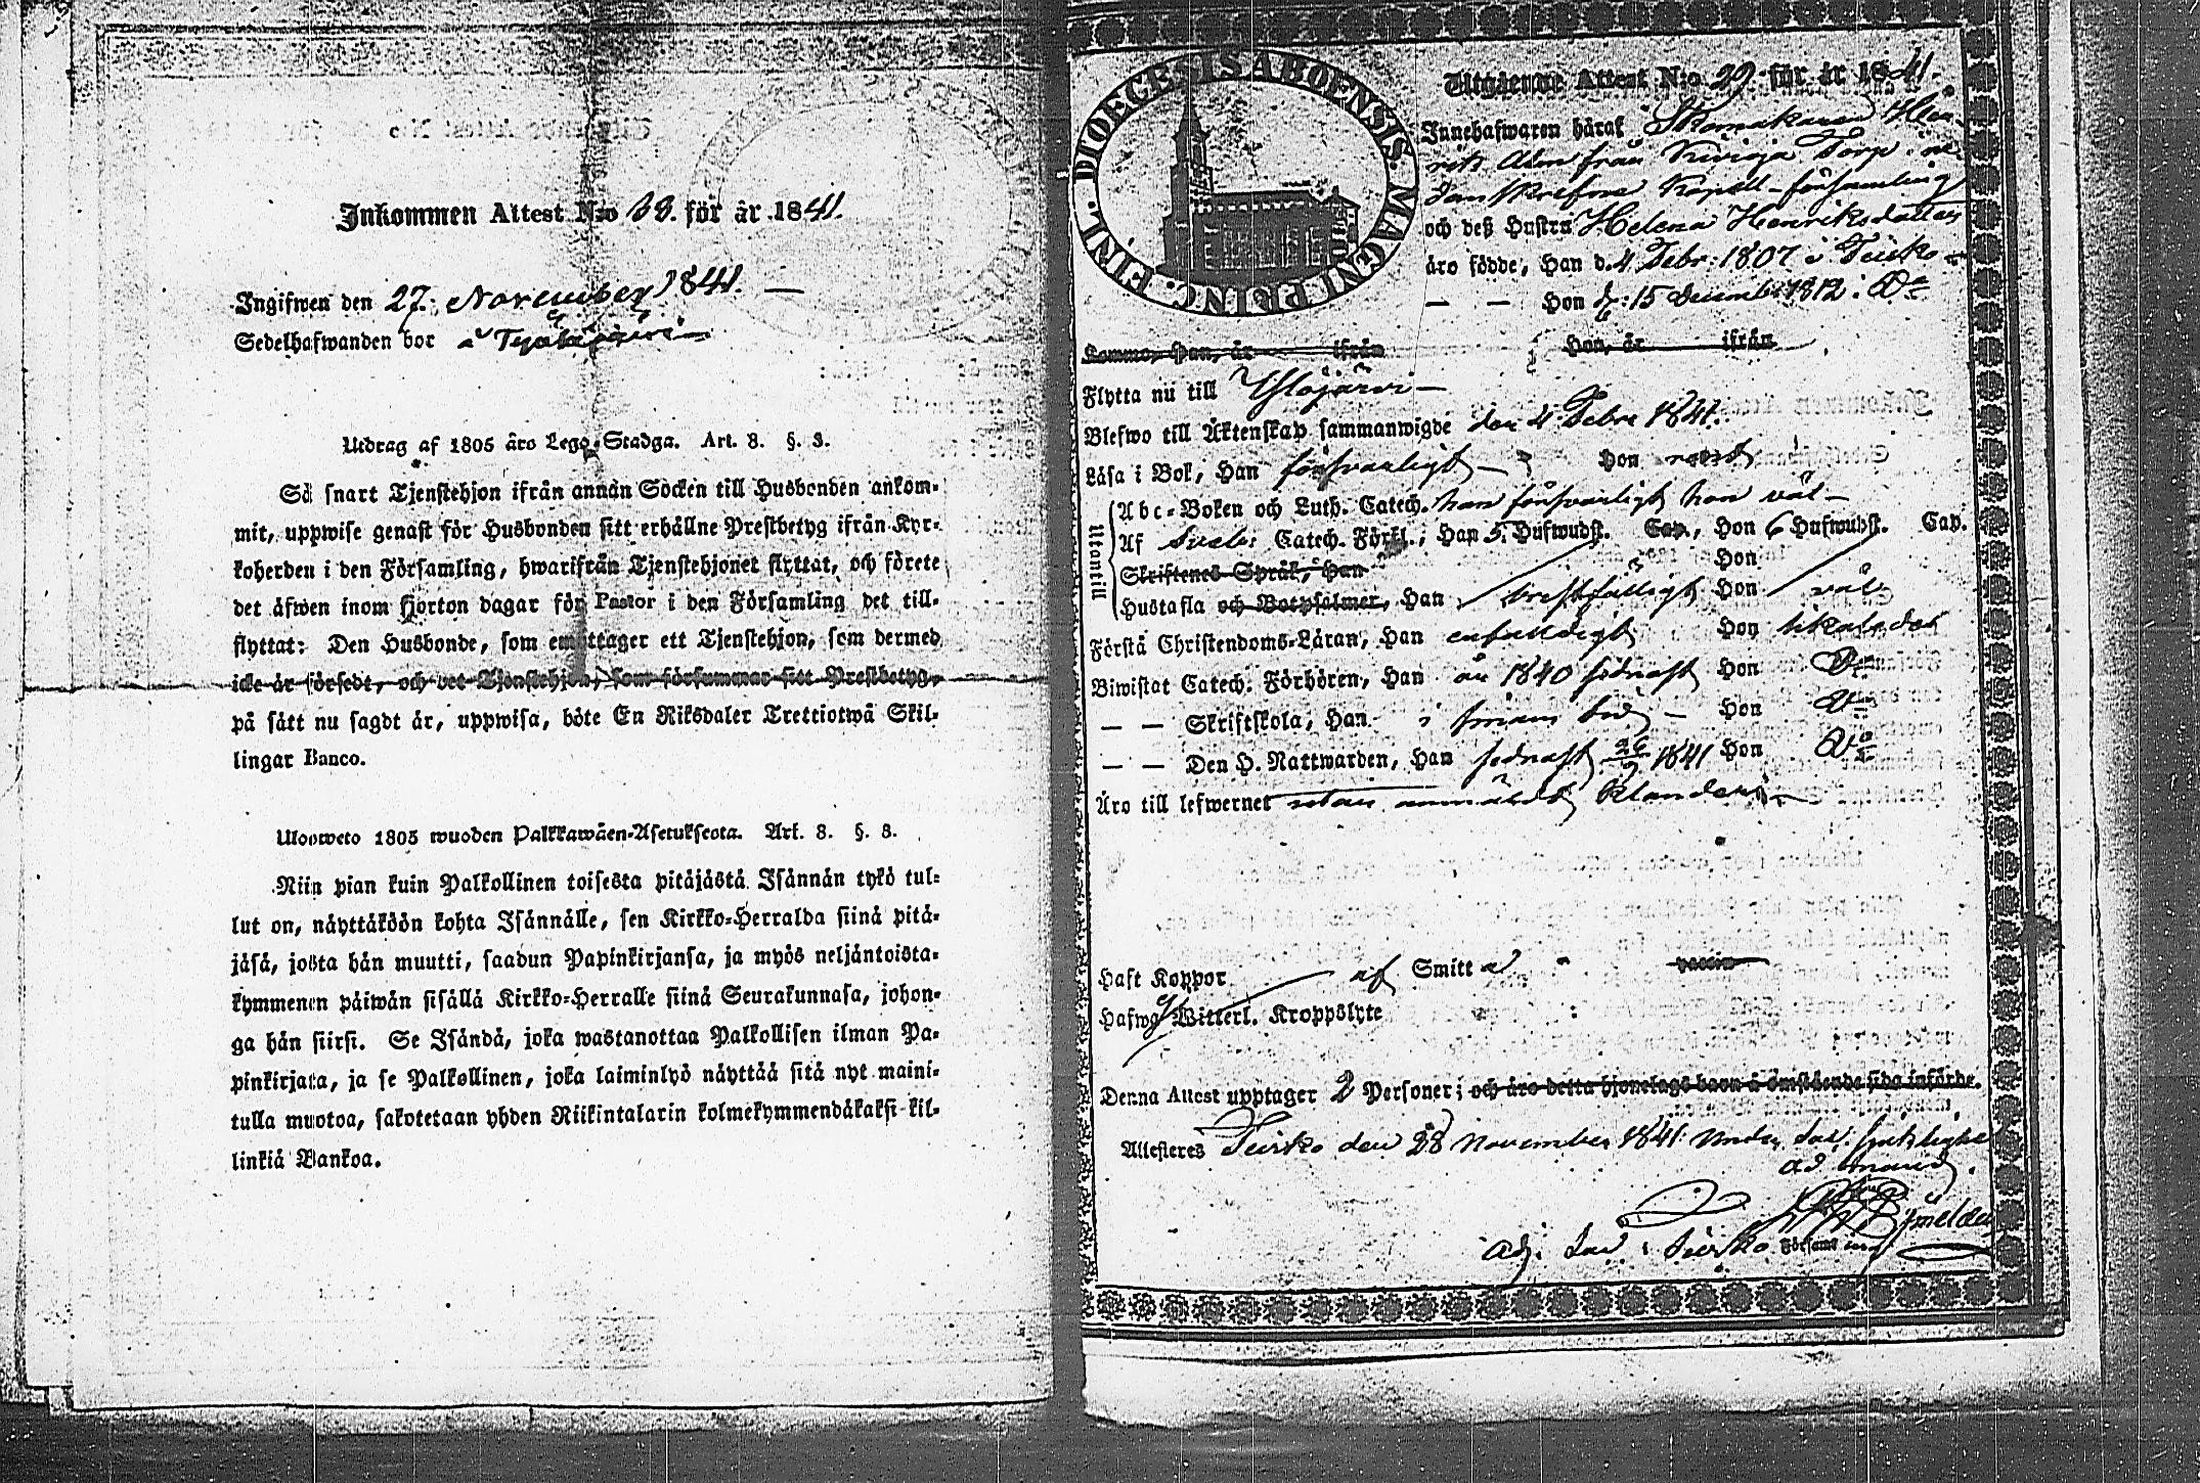 Inkommen Attest N:o 33. för år 1841.
Ingifwen den 27. November 1841. —
Sedelhafwanden bor å
Utdrag af 1805 års Lego-Stadga. Art. 8. §. 3.
Så snart Tjenstehjon ifrån annan Socken till Husbonden ankom-
mit, uppwise genast för Husbonden sitt erhållne Prestbetyg ifrån Kyr-
koherden i den Församling, hwarifrån Tjenstehjonet flyttat, och förete
det äfwen inom fjorton dagar för Pastor i den Församling det till-
flyttat: Den Husbonde, som emottager ett Tjenstehjon, som dermed
icke är försedt, och det Tjenstehjon, som försummar sitt Prestbetyg,
på sätt nu sagdt är, uppwisa, böte En Riksdaler Trettiotwå Skil-
lingar Banco.
Uloosweto 1805 wuoden Palkkawäen-Asetuksesta. Art. 8. §. 3.
Niin pian kuin Palkollinen toisesta pitäjästä Isännän tykö tul-
lut on, näyttäköön kohta Isännälle, sen Kirkko-Herralda siinä pitä-
jäsä, josta hän muutti, saadun Papinkirjansa, ja myös neljäntoista-
kymmenen päiwän sisällä Kirkko-Herralle siinä Seurakunnasa, johon-
ga hän siirsi. Se Isändä, joka wastanottaa Palkollisen ilman Pa-
pinkirjata, ja se Palkollinen, joka laiminlyö näyttää sitä nyt maini-
tulla muotoa, sakotetaan yhden Riikintalarin kolmekymmendäkaksi kil-
linkiä Bankoa.
DIOECESIS ABOENSIS. MAGNI PRINC. FINL.
Utgående Attest N:o 29 för år 1841.
Innehafwaren häraf Skomakaren Hen-
rik Alm från Kivioja Torp i ne-
danskrefne Kapell-församling
och deß Hustru Helena Henriksdotter
äro födde, Han d. 4 Febr: 1807 i Teisko
— — Hon d: 15 December 1812 i Do
Komme, Han, år ifrån Hon, år ifrån
Flytta nu till Ylöjärvi —
Blefwo till Äktenskap sammanwigde den 4 Febr 1841.
Läsa i Bok, Han försvarligt — Hon
Utantill
Abc-Boken och Luth. Catech. han försvarligt hon väl —
Af Sveb: Catech. Förkl., Han 5. Hufwudst. Cap., Hon 6 Hufwudst. Cap.
Skriftenes Språk, Han Hon
Hustafla och Botpsalmer, Han bristfälligt Hon väl
Förstå Christendoms-Läran, Han enfaldigt Hon likaledes
Biwistat Catech. Förhören, Han år 1840 sednast Hon Do
— — Skriftskola, Han i sinom tid — Hon Do
— — Den H. Nattwarden, Han sednast 26/9 1841 Hon Do
Äro till lefwernet utan anmäldt klander —
Haft Koppor af Smitta vaccin
Hafwa Witterl. Kroppslyte
Denna Attest upptager 2 Personer; och äro detta hjonelags barn å omstående sida införde.
Attesteras Teisko den 28 November 1841. Under
ad mand.
Adj. Sac. i Teisko Församling